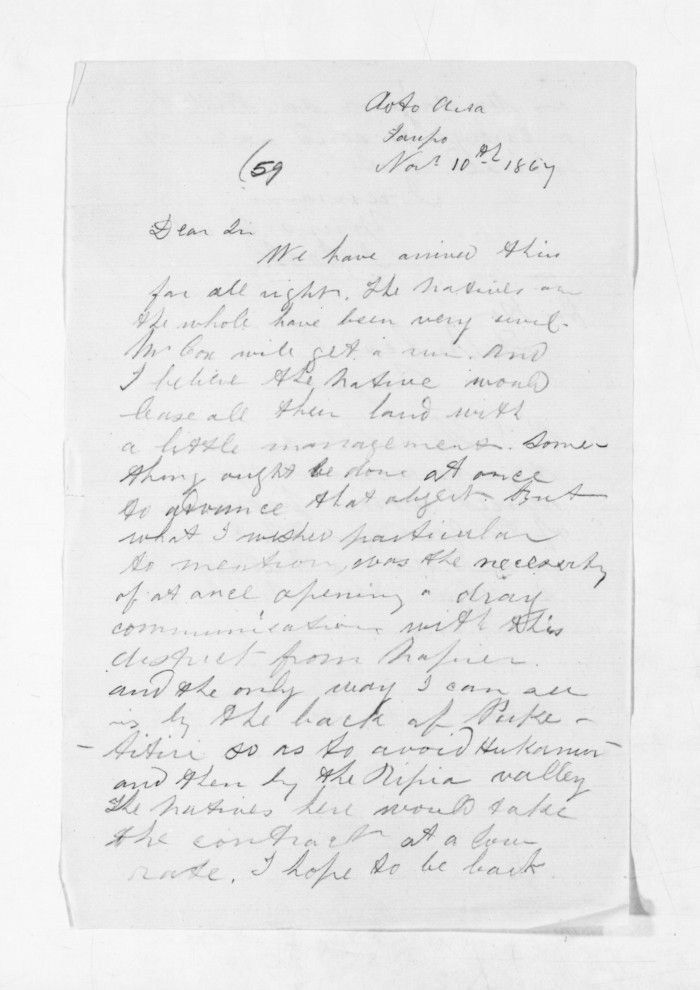 Roto Aira
Taupo
(59
Novr 10th 1867
Dear Sir
We have arrived thus
far all right. The Natives on
the whole have been very civil.
Mr Cox will get a run. And
I believe the Native would
lease all their land with
a little management. Some-
thing ought be done at once
to advance that object. But
what I wished particular
to mention, was the necessity
of at once opening a dray
communication with this
district from Napier.
and the only way I can see
is by the back of Puke-
-titiri so as to avoid
and then by the Ripia valley
The Natives here would take
the contract at a low
rate. I hope to be back